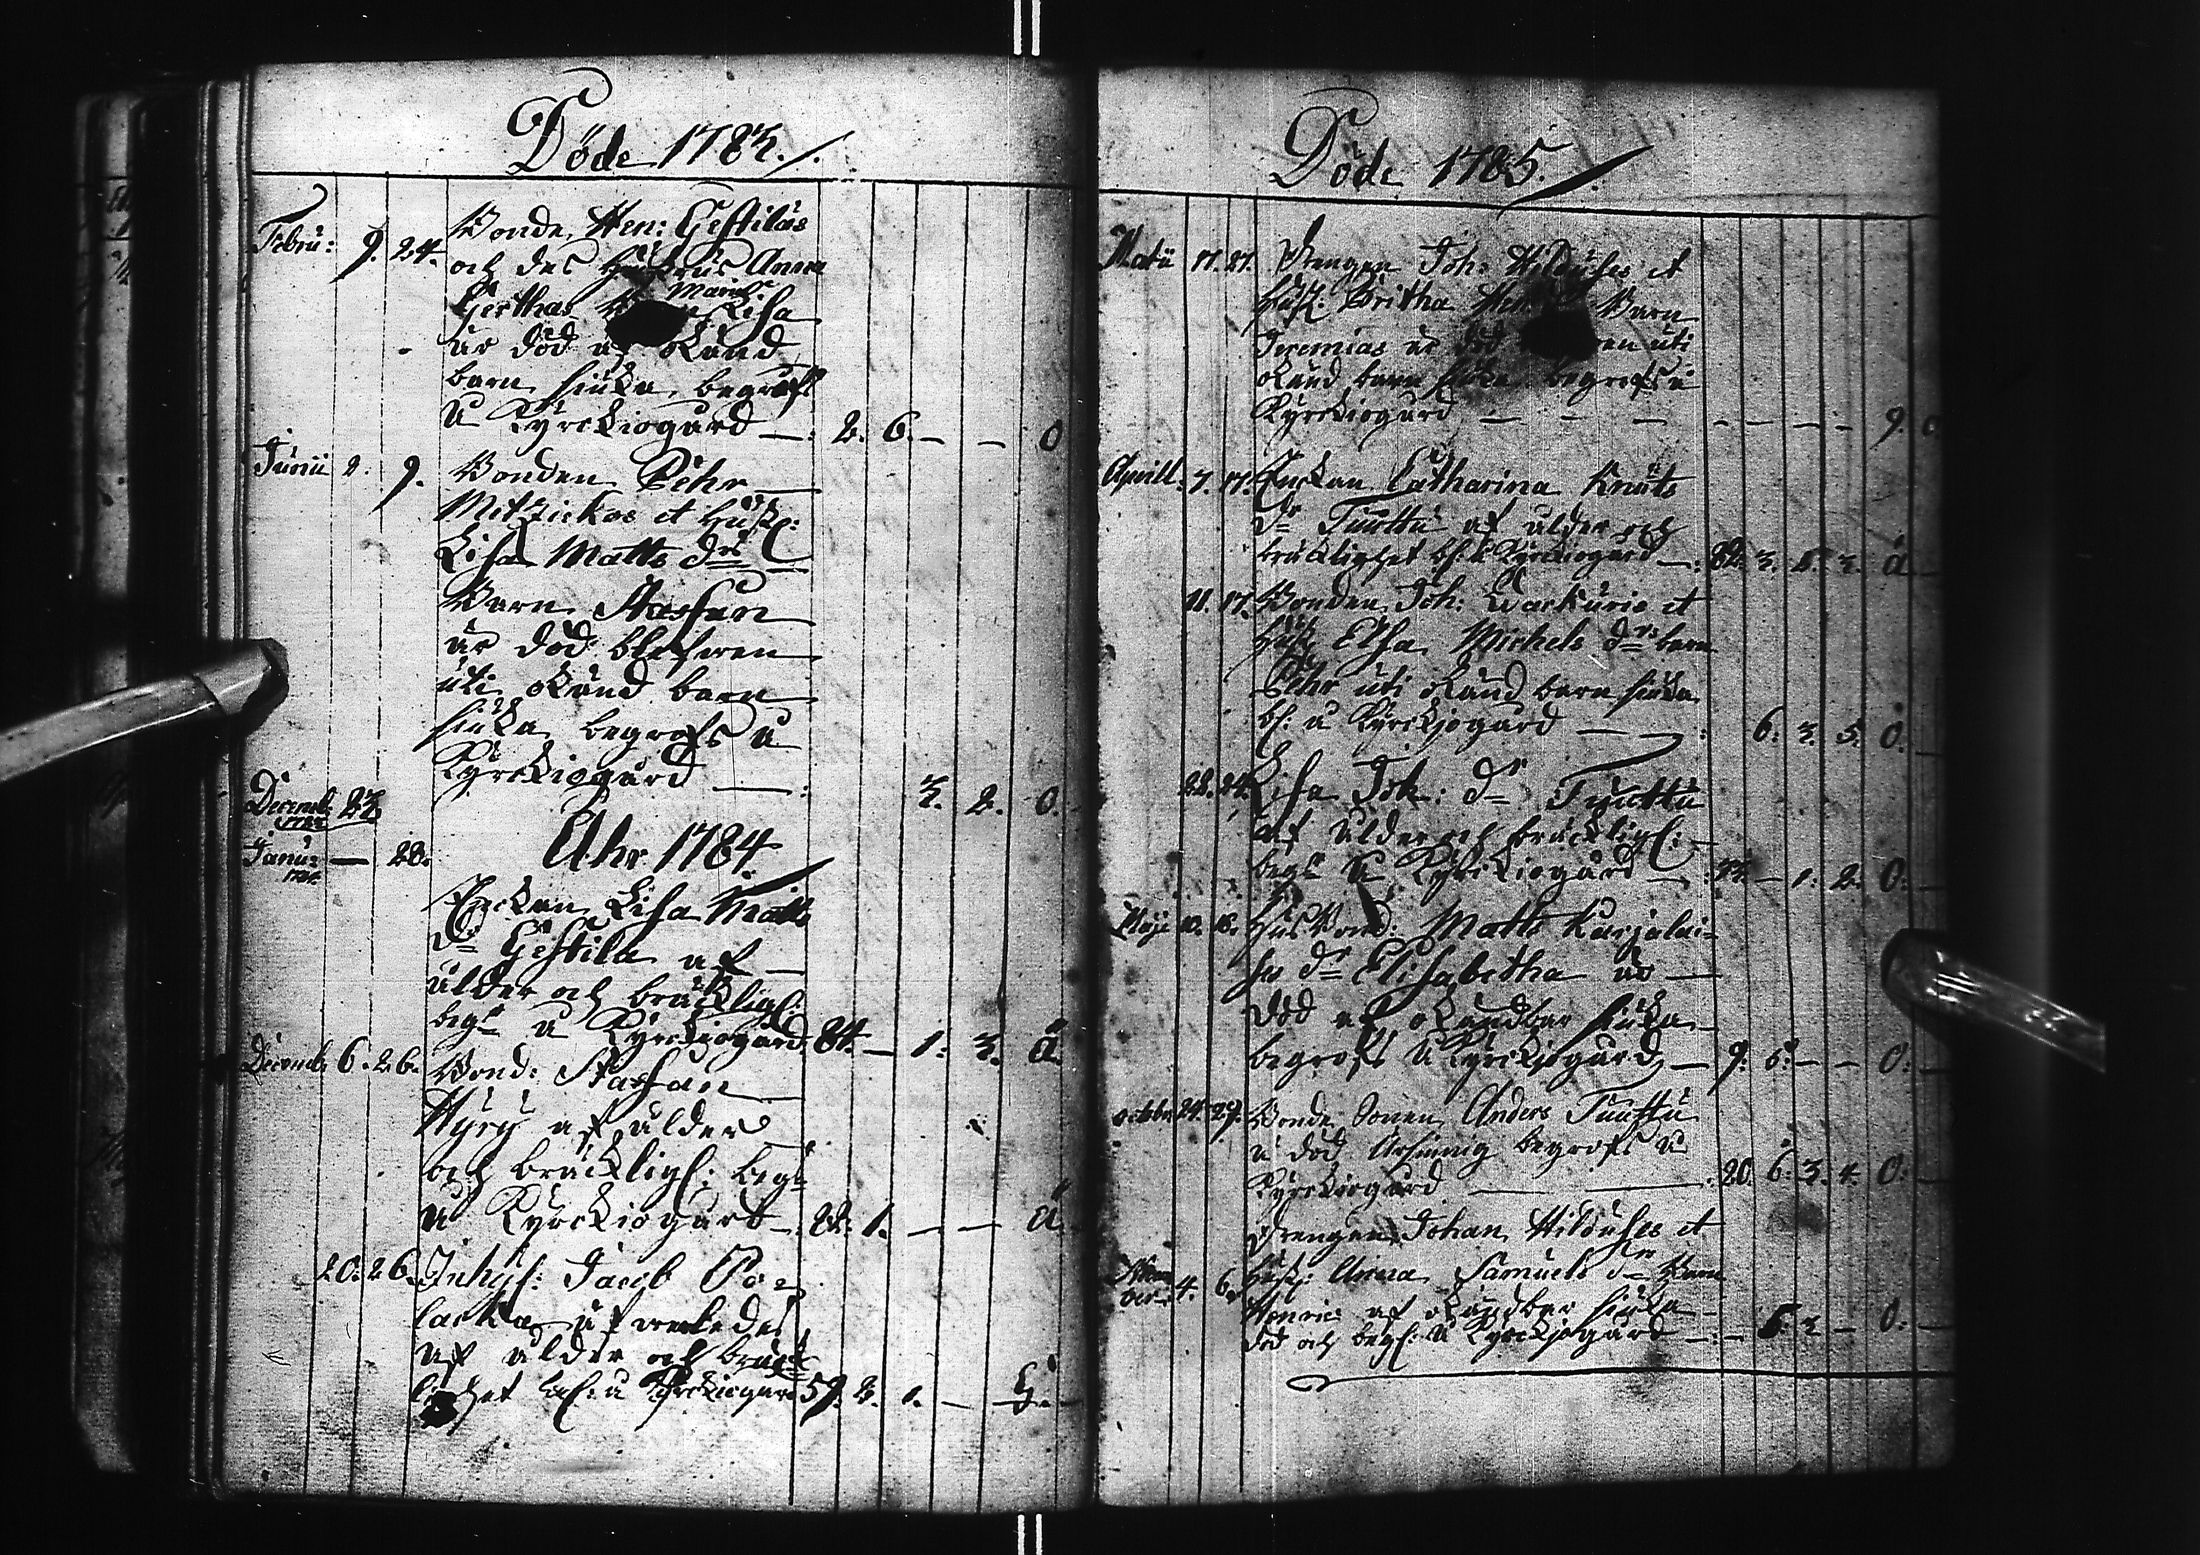 Döde 1783.
Febru: 9. 24. Bonde Hen: Gestilas
och des Hustrus Anna
Gerthas Maria Lisa
är död af okänd
barn siuka, begrafs
å Kÿrckiogård — 2. 6. — — O
Junii 2. 9. Bonden Pehr
Mitzickas et Hust:
Lisa Matts drs
Barn Staffan
är död blefwen
uti okänd barn
siuka begrafs å
Kÿrckiogård — 3. 2. O.
Decemb 27
1783
Janu: — 28.
1784
Åhr 1784
Enckan Lisa Matts
dr Gestila af
ålder och bräckligh:
begr å Kÿrckiogård 84. — 1. 3. Ä
Decemb 6. 26. Bond: Staffan
Hÿrÿ af ålder
och bräckligh: begr
å Kÿrckiogård — 82. 1. — — Ä
20. 26. Inhys: Jacob Po=
lacka af
af ålder och bräck
lighet å Kÿrckiogård 59. 2. 1. — — G.
Döde 1785.
Matii 17. 27. Drengen Joh: Hilduses et
Hust: Britha Hen Barn
Jeremias är död en uti
okänd barn siuka begrafs å
Kÿrckiogård — — — — — — — 9.
Aprill. 7. 17. Enckan Catharina Knuts
dr Tuuttu af ålder och
bräcklighet bf: å Kÿrckiogård — 82. 3. 5. 3. Ä
11. 17. Bonden Joh: et
Hust Elsa Michels drs barn
Pehr uti okänd barn siuka
bf: å Kÿrckiogård — — 6. 3. 5. O.
22. 24. Lisa Joh: dr Tuuttu
af ålder och bräckligh: —
begr å Kÿrckiogård — 73. — 1. 2. O.
Maji 10. 16. Hus Bond: Matts Karjalai=
sis dr Elisabetha är —
död af okändbar siuka —
begrafs å Kÿrckiogård — 9. 5. — — O.
octobr 24. 29. Bonde Sonen Anders Tuuttu
å död begrafs å
Kÿrckiogård — — 20. 6. 3. 4. O.
Drengen Johan Hilduses et
Novem
ber 4. 6. Hust: Anna Samuels dr Barn
Henric af okändbar siuka —
död och begf: å Kÿrckjogård — — 5. 2. — O.